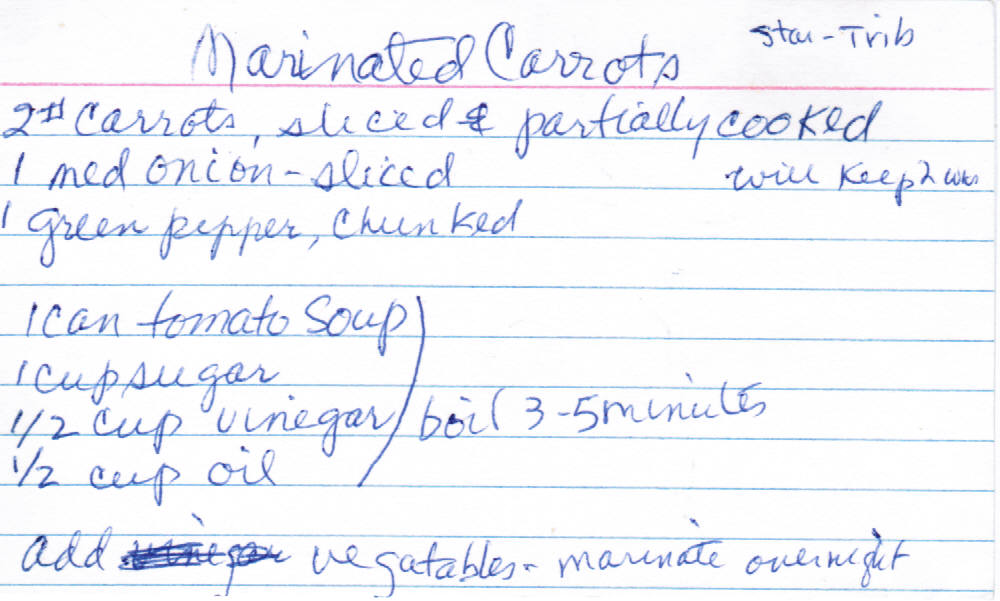 Marinated Carrots
Star-Trib
2# Carrots, sliced & partially cooked
1 med onion - sliced
will Keep 2 wks
1 green pepper, Chunked
1 can tomato Soup
1 cup sugar
1/2 cup vinegar
boil 3-5 minutes
1/2 cup oil
add vegatables - marinate overnight